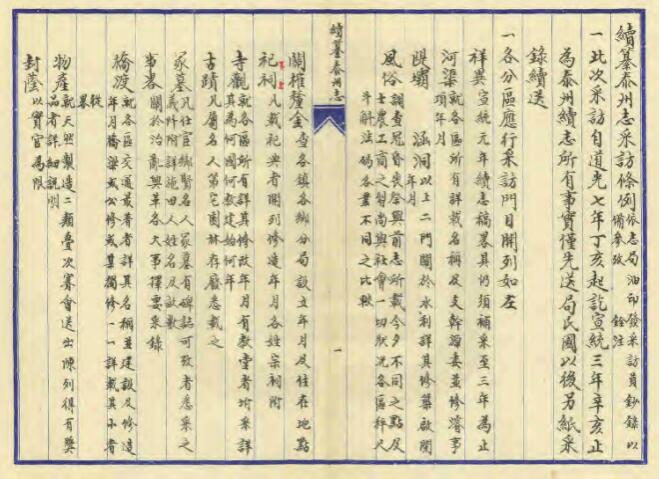 續纂泰州志采訪條例依志局油印發采訪員鈔錄以備參攷 銓注
一此次采訪自道光七年丁亥起訖宣統三年辛亥止
為泰州續志所有事實僅先送局民國以後另紙采
錄續送
一各分區應行采訪門目開列如左
祥異宣統元年續志稿畧具仍須補采至三年為止
河渠就各區所有詳載名稱及支幹濶窄並修濬事項年月
隄壩 涵洞以上二門關於水利詳其修築啟閉年月
風俗調查冠昏喪祭與前志所載今夕不同之點及士農工商之習尚與社會一切狀況各區秤尺斗斛法碼各業不同之比較
續纂泰州志
一
關榷釐金查各鎮各鄉分局設立年月及住在地點
祀祠凡載祀典者開列修造年月各姓宗祠附
寺觀就各區所有詳其修改年月有教堂者坿采詳其為何國何教建始何年
古蹟凡屬名人第宅園林存廢悉載之
冢墓凡仕宦鄉賢名人冢墓有碑誌可攷者悉采之義阡附詳施田人姓名及畝數
事畧關於治亂興革各大事擇要采錄
橋渡就各區交通最著者詳其名稱並建設及修造年月橋梁或公修或某獨修一一詳載其小者從畧
物產就天然製造二類疊次賽會送出陳列得有獎品者詳細說明
封蔭以實官為限